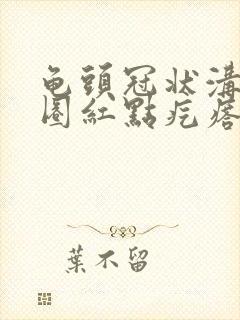 龟頭冠状溝
圏紅點疙瘩
葉不留